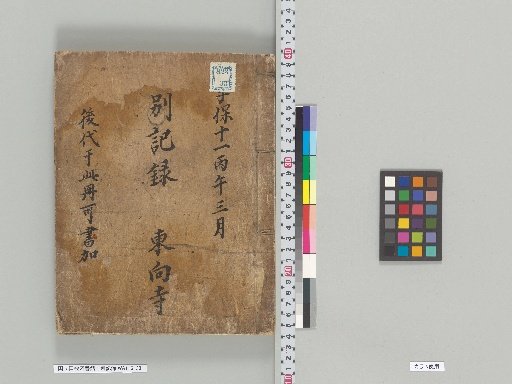 享保十一丙午三月
別記録 東向寺
後代于此冊可書加